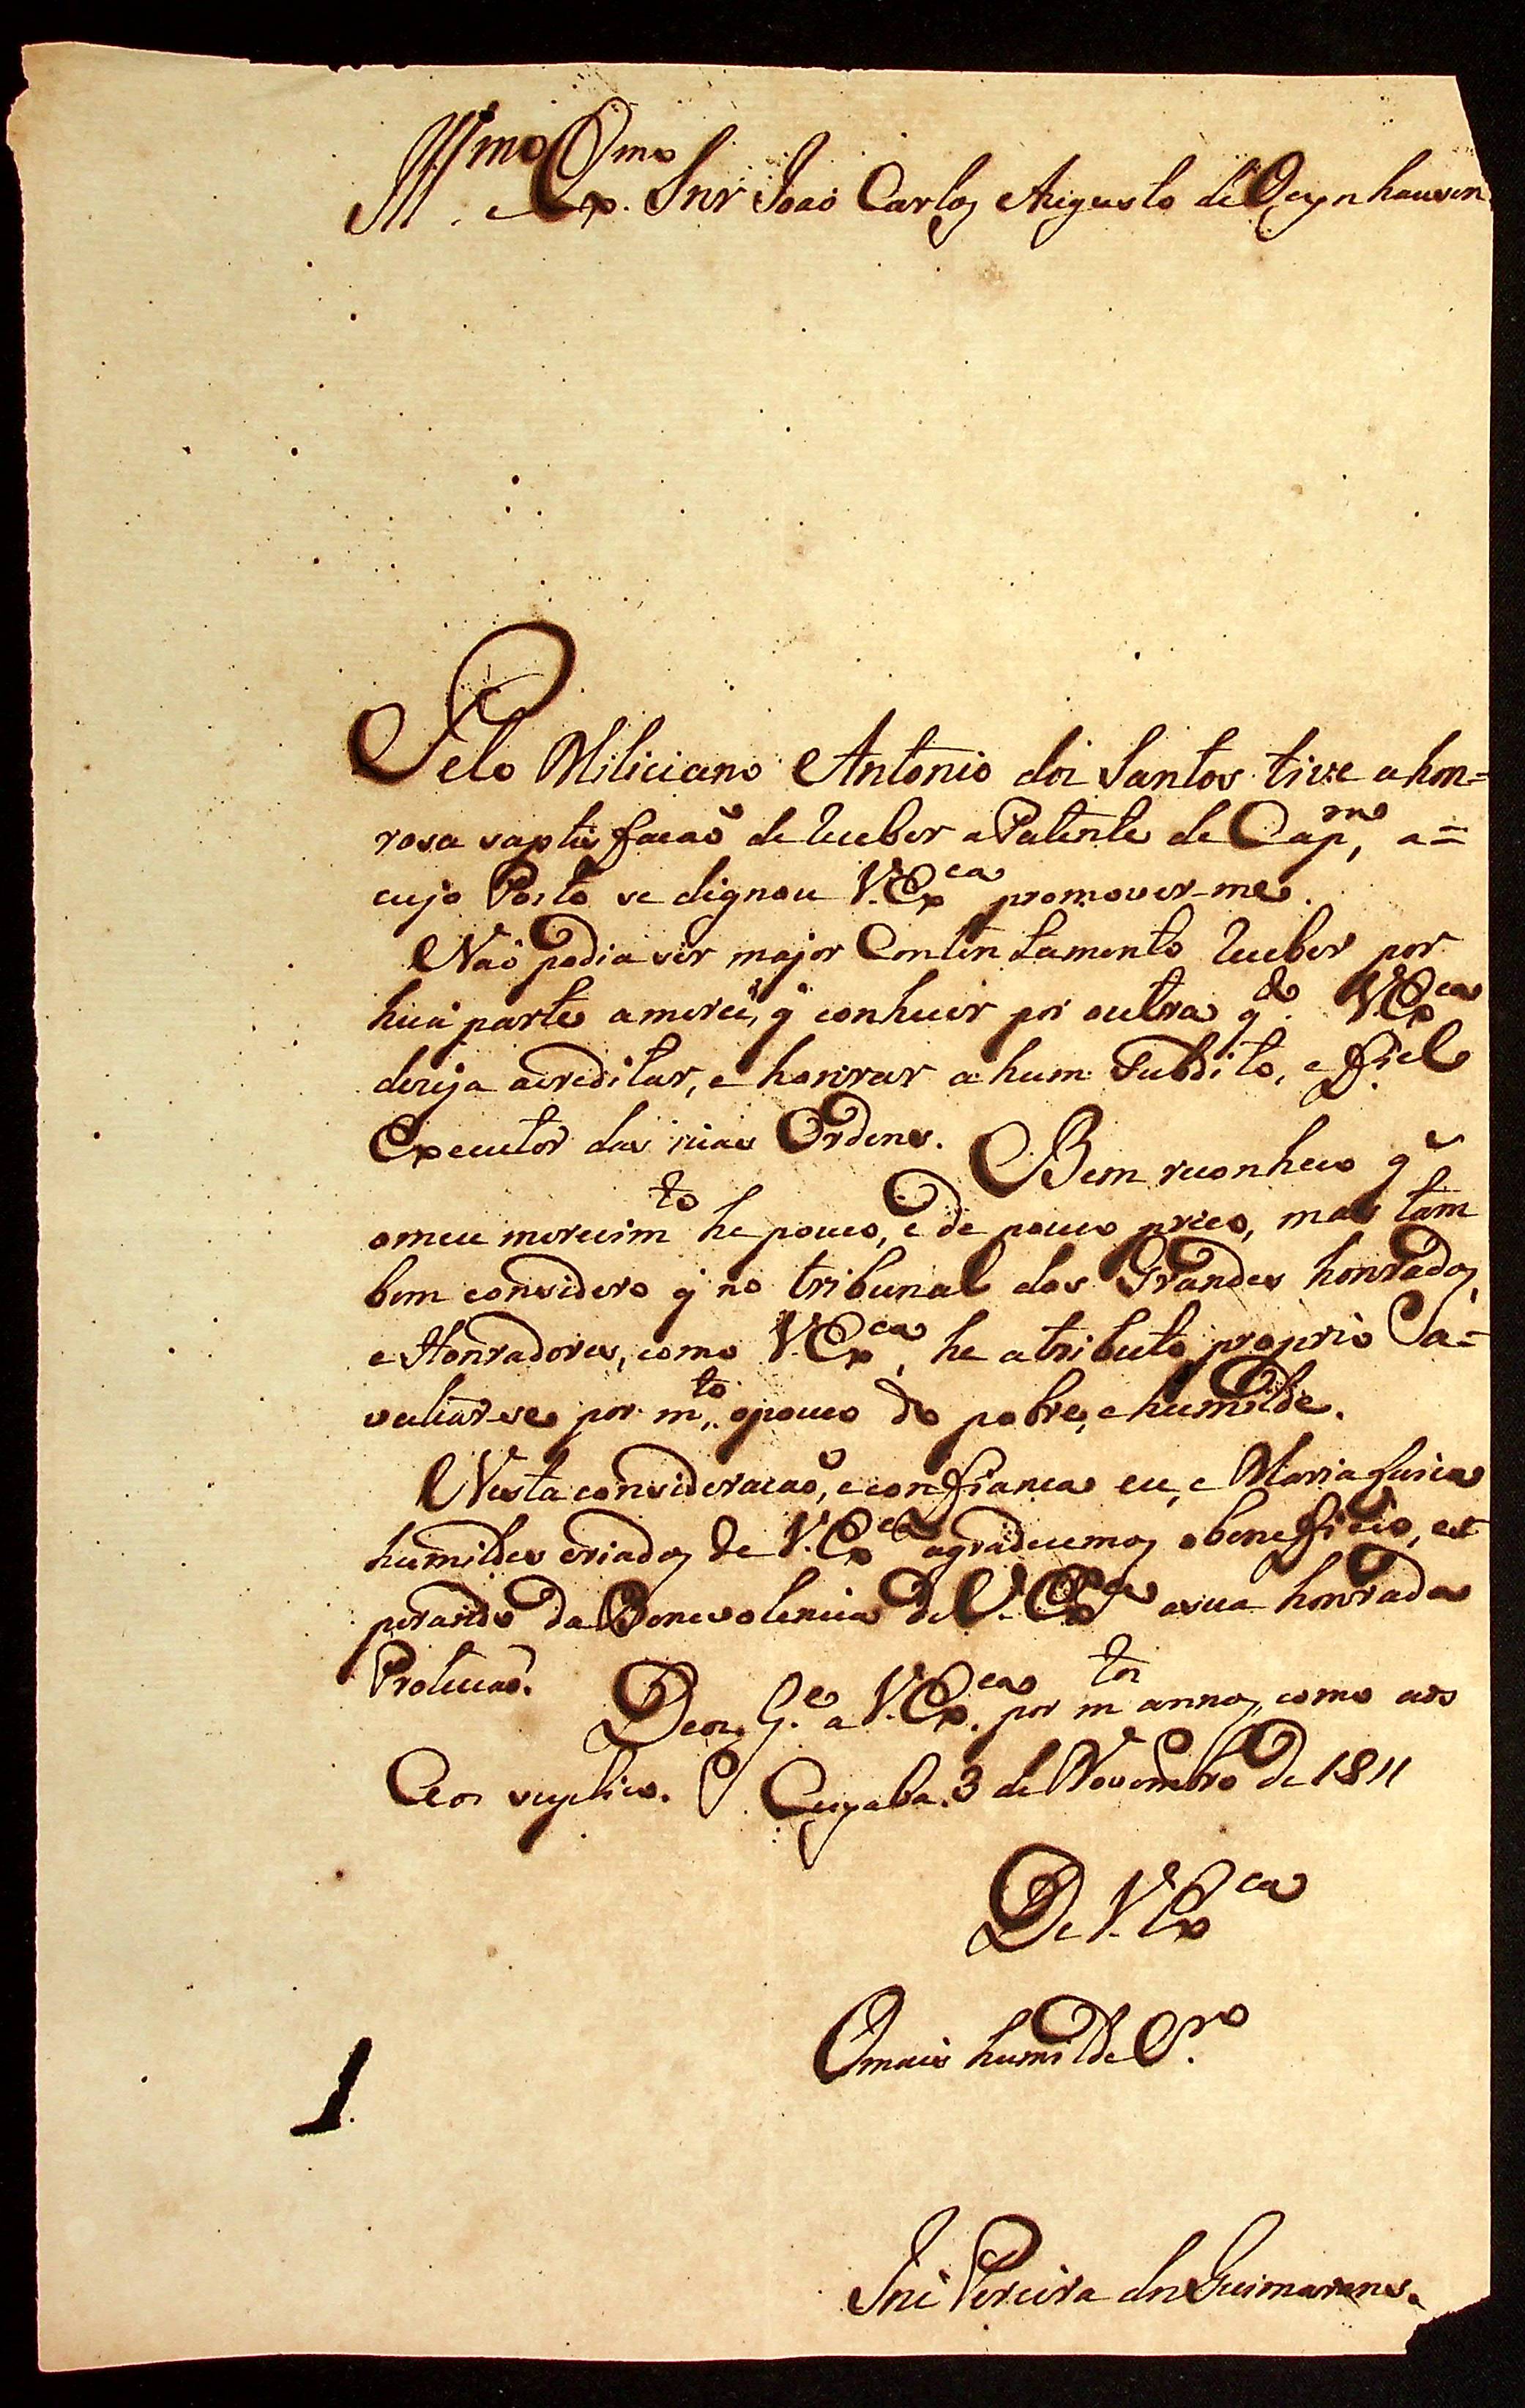 Ill.mo e Ex.mo Snr Joaõ Carlos Augusto de Oeynhausen
Pelo Miliciano Antonio dos Santos tive a hon=
rosa saptisfacaõ de receber a Patente de Cap.mo, a=
cujo Posto se dignou V. Exca promover-me.
Naõ podia ser major Contentamento receber por
huã parte a merce, q̃ conhecer por outra q̃ de V. Exca
deseja acreditar, e honrar a hum Subdito, e Fiel
Executor das suas Ordens. Bem reconheco q̃
o meu merecimto he pouco, e de pouco preco, mas tam
bem considero q̃ no tribunal dos Grandes honrados,
e Honradores, como V. Exca, he atributo proprio
valiar-se por mto o pouco do pobre, e humilde.
Nesta consideracaõ, e confianca eu, e Maria
humildes criados de V. Exca agradecemos o beneficio, es
perando da Benevolencia de V. Exca a sua honrada
Protecaõ. Deos G.e a V. Exca por mtos annos, como aos
Ceos suplico. Cuyaba 3 de Novembro de 1811
De V. Exca
O mais humilde C.ro
Joze Pereira dos Guimaraens.
1.